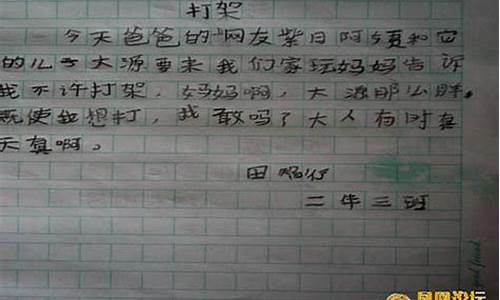 打架
今天爸爸的网友紫日阿姨和它
的儿子大源要来我们家玩妈妈告诉
我不许打架，妈妈啊，大源那么胖。
既使我想打，我敢吗？大人有时真
天真啊。
田
二年三班
凤凰论坛